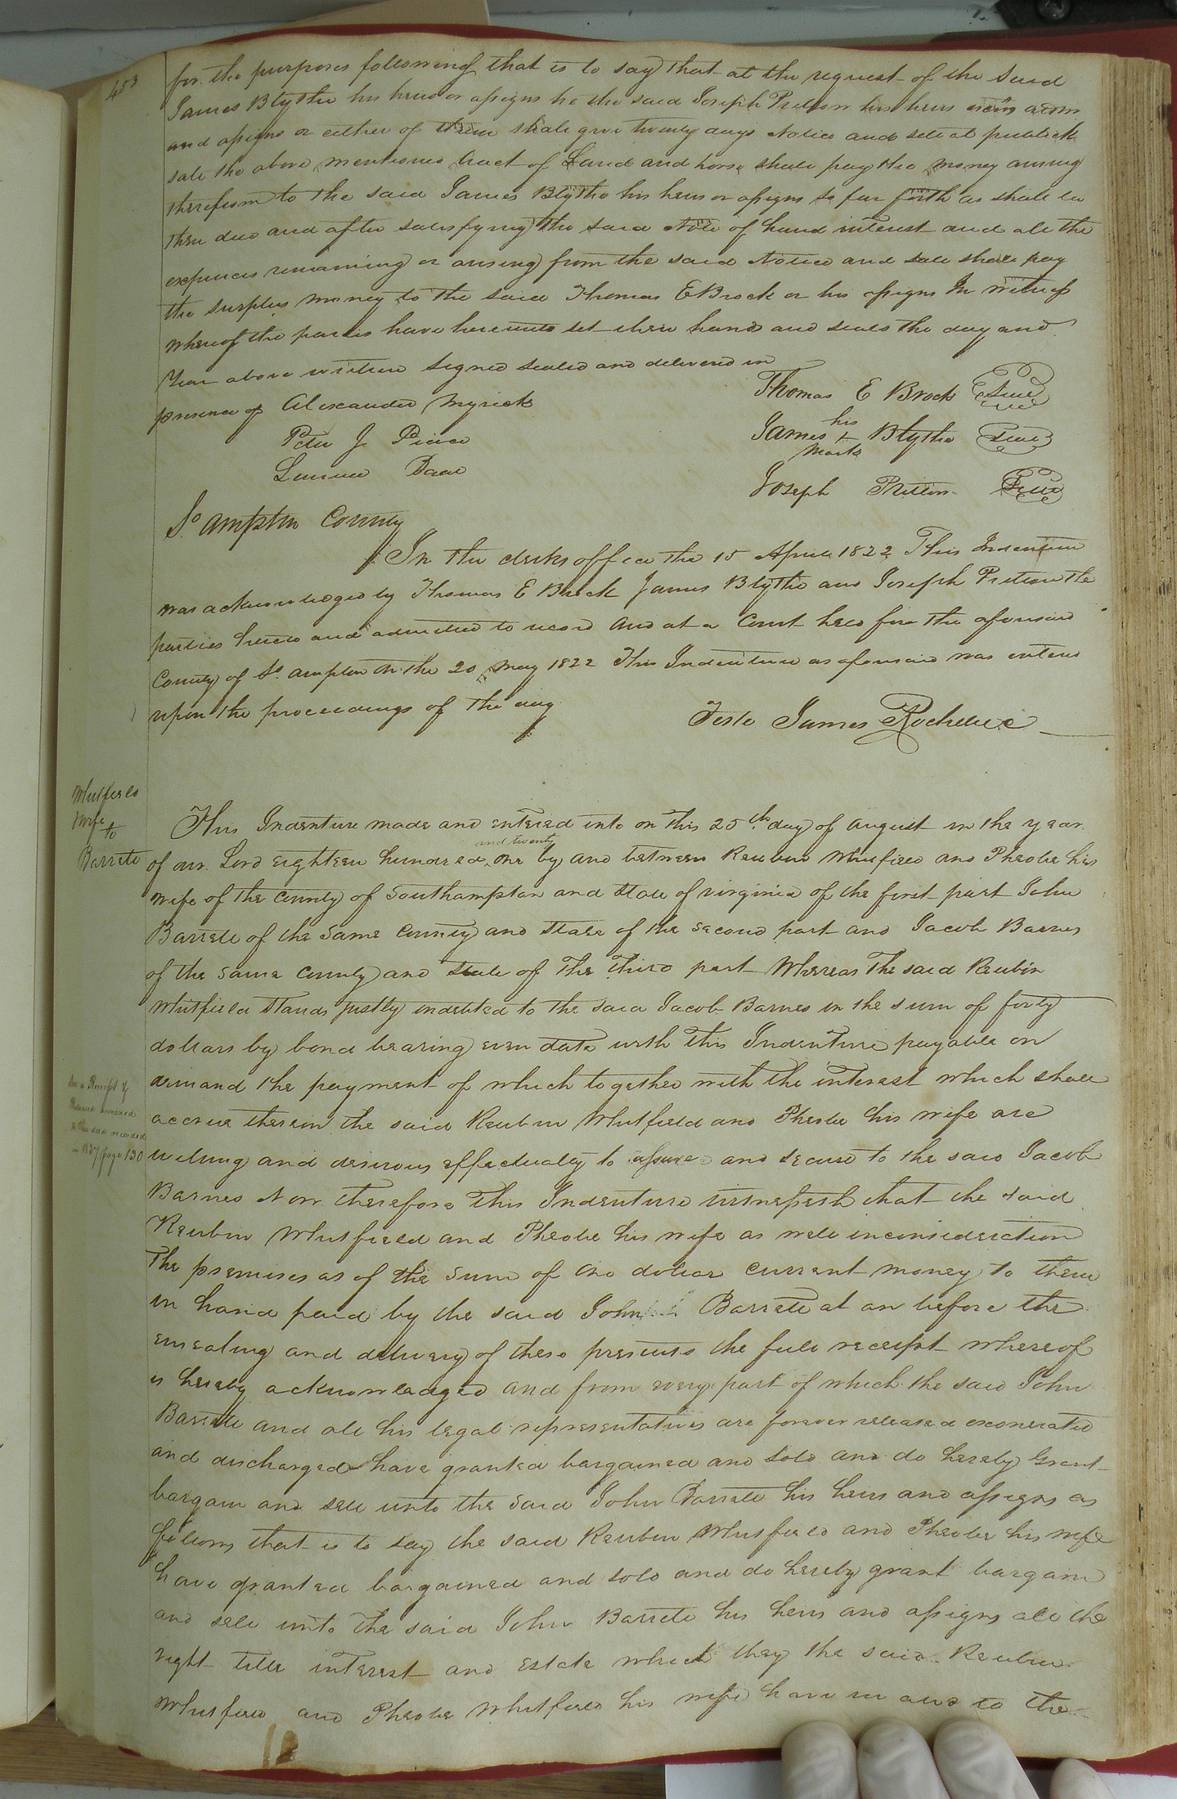 453
for the purposes following that is to say that at the request of the said
James Blythe his heirs or assigns he the said Joseph Pretlow his heirs exors adms
and assigns or either of them shall give twenty days Notice and sell at publick
sale the above mentioned tract of Land and horse shall pay the money arising
therefrom to the said James Blythe his heirs or assigns so far forth as shall be
then due and after satisfying the said Note of hand interest and all the
expences remaining or arising from the said Notice and sale shall pay
the surplus money to the said Thomas E Brock or his assigns In witness
whereof the parties have hereunto set their hand and seals the day and
Year above written Signed Sealed and delivered in
presence of Alexander Myrick
Thomas E Brock Seal
Peter J Peirce
James his + mark Blythe Seal
Joseph Pretlow Seal
So ampton County
In the clerks office the 15 April 1822 This Indenture
was acknowledged by Thomas E Brock James Blythe and Joseph Pretlow the
parties hereto and admitted to record And at a Court held for the aforesaid
County of So ampton on the 20 May 1822 This Indenture as aforesaid was entered
upon the proceedings of the day
Teste James Rochelle
Whitfield
Wife
to
Barrett
This Indenture made and entered into on this 25th day of August in the year
of our Lord eighteen hundred and twenty one by and between Reubin Whitfield and Pheobe his
wife of the County of Southampton and State of virginia of the first part John
Barrett of the same County and State of the second part and Jacob Barnes
of the same County and State of the third part Whereas the said Reubin
Whitfield Stands justly indebted to the said Jacob Barnes in the sum of forty
dollars by bond bearing even date with this Indenture payable on
demand the payment of which together with the interest which shall
accrue thereon the said Reubin Whitfield and Pheobe his wife are
willing and desirous effectually to assure and secure to the said Jacob
Barnes Now therefore this Indenture witnesseth that the said
Reubin Whitfield and Pheobe his wife as well inconsideration
The premises as of the sum of one dollar current money to them
in hand paid by the said John Barrett at an before the
ensealing and delivery of these presents the full receipt whereof
is hereby acknowledged and from every part of which the said John
Barrett and all his legal representatives are forever released exonerated
and discharged have granted bargained and sold and do hereby Grant
bargain and sell unto the said John Barrett his heirs and assigns as
follows that is to say the said Reubin Whitfield and Pheobe his wife
have granted bargained and sold and do hereby grant bargain
and sell unto the said John Barrett his heirs and assigns all the
right title interest and estate which they the said Reubin
Whitfield and Pheobe Whitfield his wife have in and to the